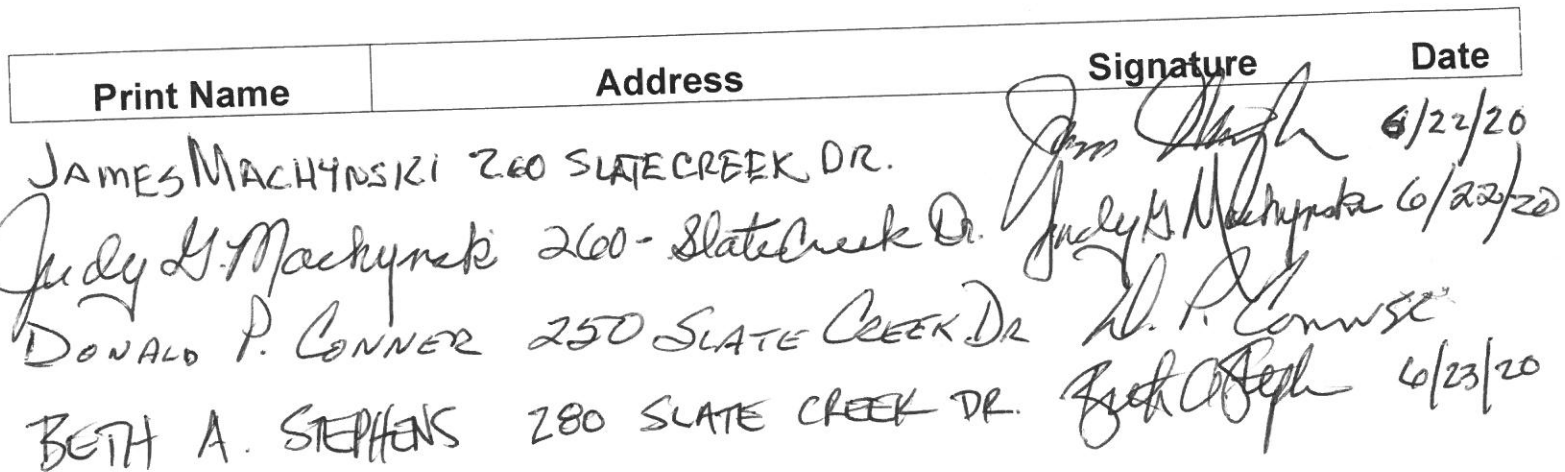 Print Name Address Signature Date
JAMES MACHYNSKI 260 SLATECREEK DR. 6/22/20
Judy G. Machynski 260- Slate Creek Dr. Judy G. Machynski 6/22/20
DONALD P. CONNER 250 SLATE CREEK DR D. P. Conner
BETH A. STEPHENS 280 SLATE CREEK DR. Beth A Steph 6/23/20